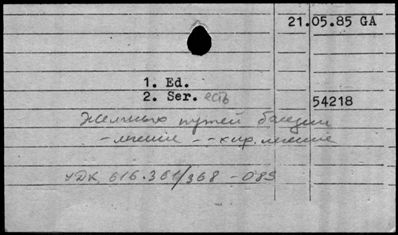 21.05.85 GA
1. Ed.
2. Ser. есть
54218
Желчных путей болезни
- лечение - - хир. лечение
УДК 616.361/368-089